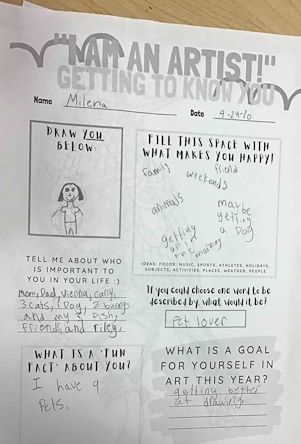 "I AM AN ARTIST!"
GETTING TO KNOW YOU
Name Milena
Date 9-24-20
DRAW YOU
BELOW:
FILL THIS SPACE WITH
WHAT MAKES YOU HAPPY!
family
friend
weekends
animals
maybe
getting
a Dog
getting
up in
the morning
IDEAS: FOODS, MUSIC, SPORTS, ATHLETES, HOLIDAYS,
SUBJECTS, ACTIVITIES, PLACES, WEATHER, PEOPLE
TELL ME ABOUT WHO
IS IMPORTANT TO
YOU IN YOUR LIFE :)
mom, Dad, Vienna, cally,
3 cats, 1 Dog, 2 bunnys
and my 3 fish,
friends and riley.
If you could choose one word to be
described by, what would it be?
Pet lover
WHAT IS A 'FUN
FACT' ABOUT YOU?
I have 9
Pets.
WHAT IS A GOAL
FOR YOURSELF IN
ART THIS YEAR?
getting better
at drawing.